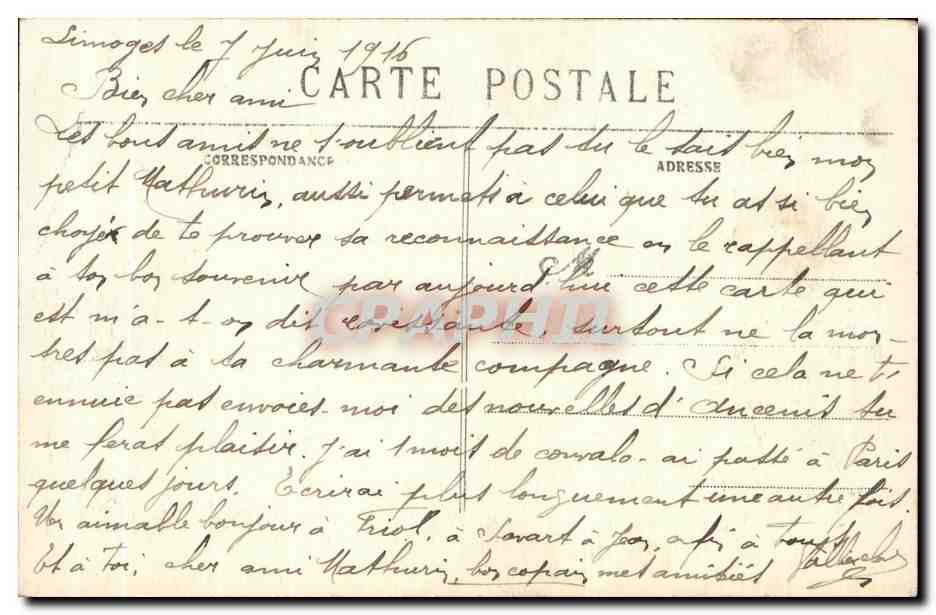 Limoges le 7 Juin 1916
CARTE POSTALE
Bien cher ami
Les bons amis ne s'oublient pas tu le sais bien mon
CORRESPONDANCE
ADRESSE
petit Mathurin, aussi permets à celui que tu as si bien
choyé de te prouver sa reconnaissance en le rappellant
à ton bon souvenir par aujourd'hui cette carte qui
est m'a-t-on dit ravissante, surtout ne la mon-
CPAPHIL
tres pas à ta charmante compagne. Si cela ne t'
ennuie pas envoies-moi des nouvelles d'Ancenis tu
me feras plaisir. J'ai 1 mois de convalo-ai passé à Paris
quelques jours. Ecrirai plus longuement une autre fois.
Un aimable bonjour à Friol, à Savart à Jean, afin à tous
Et à toi, cher ami Mathurin, bon copain mes amitiés